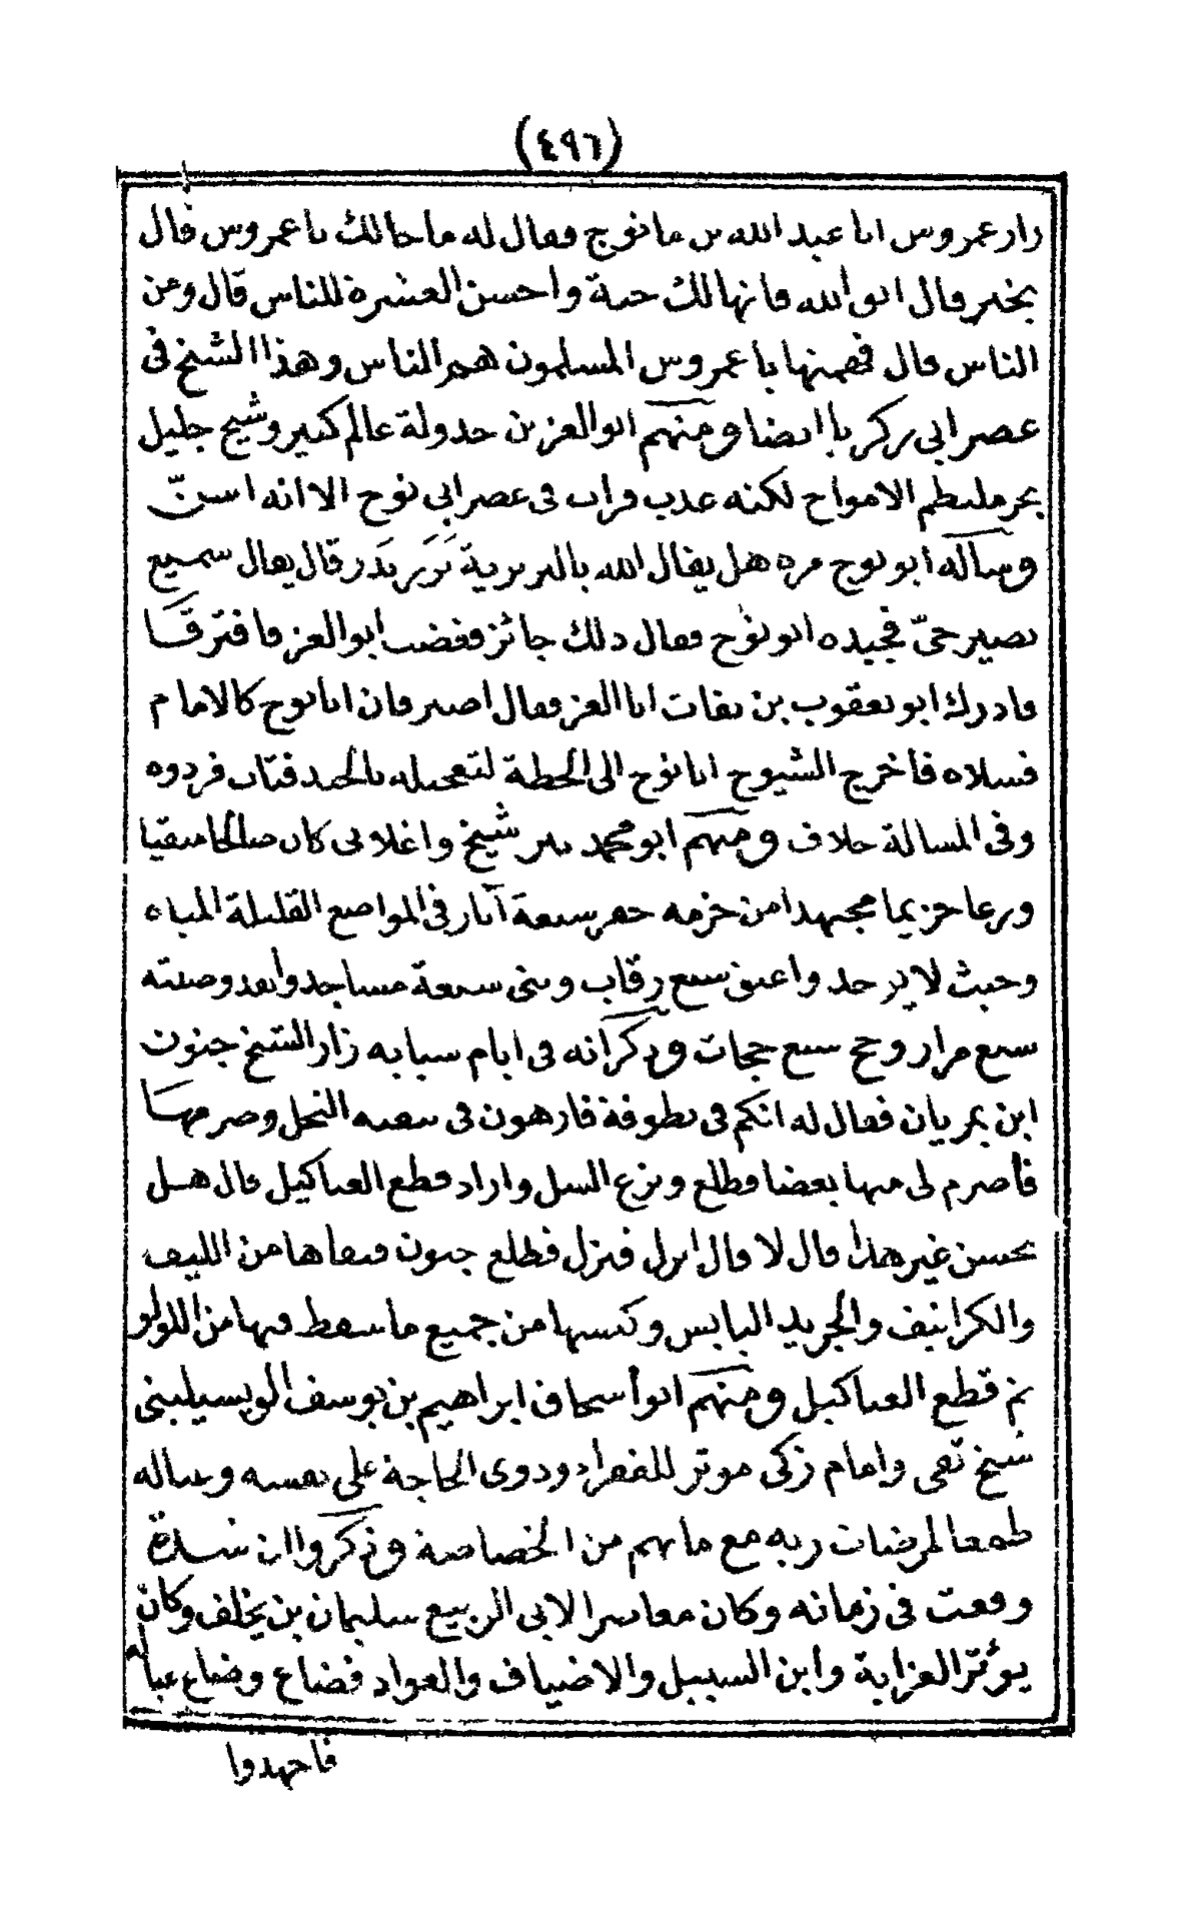 (٤٩٦)
زار عمروس ابا عبد الله بن مانوج فقال له ما حالك يا عمروس قال
بخير قال اتق الله فانها لك جنة واحسن العشرة للناس قال ومن
الناس قال فهمنها يا عمروس المسلمون هم الناس وهذا الشيخ في
عصر ابي زكريا ايضا ومنهم ابو العز بن حدولة عالم كبير وشيخ جليل
بحر ملتطم الامواج لكنه عذب فرات في عصر ابي نوح الا انه اسنّ
وسأله ابو نوح مرة هل يقال الله بالبربرية يَرَبر يَدَر قال يقال سميع
بصير حيّ فجبذه ابو نوح فقال ذلك جائز فغضب ابو العز فافترقَا
فادرك ابو يعقوب بن نفات ابا العز فقال اصبر فان ابا نوح كالامام
فسلاه فاخرج الشيوخ ابا نوح الى الخطة لتعجيله بالجبذ فتاب فردوه
وفي المسالة خلاف ومنهم ابو محمد شيخ واغلانى كان صالحا متقيا
ورعا حزيما مجتهدا من حزمه حفر سبعة آبار في المواضع القليلة المياه
وحيث لا يوجد واعتق سبع رقاب وبنى سبعة مساجد وانفد وصيته
سبع مرار وحج سبع حجات وذكر انه في ايام شبابه زار الشيخ جنون
ابن يمريان فقال له انكم في نطوفة فارهون في تنقية النخل وصرمهَا
فأصرم لى منها بعضا فطلع ونزع السل واراد قطع العراكيل قال هل
تحسن غير هذا قال لا قال انزل فنزل فطلع جنون فنقاها من الليف
والكرانيف والجريد اليابس وكنسها من جميع ما سقط فيها من اللولو
ثم قطع العراكيل ومنهم ابو أسحاق ابراهيم بن يوسف الويسيليبنى
شيخ تقى وامام زكى موثر للفقراء وذوى الحاجة على نفسه وعياله
طمعا لمرضات ربه مع ما بهم من الخصاصة وذكروا ان شدة
وقعت في زمانه وكان معاصرا لابى الربيع سليمان بن يخلف وكان
يوثر العزابة وابن السبيل والاضياف والعواد فضاع وضاع عياله
فاجهدوا